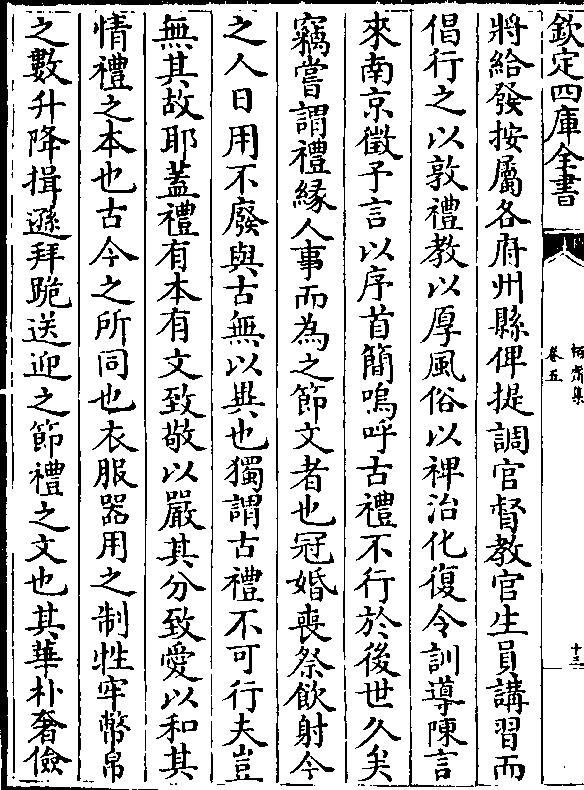 欽定四庫全書
柯齋集
卷五
十三
將給發按屬各府州縣俾提調官督教官生員講習而
倡行之以敦禮教以厚風俗以裨治化復令訓導陳言
來南京徵予言以序首簡嗚呼古禮不行於後世久矣
竊嘗謂禮緣人事而為之節文者也冠婚喪祭飲射今
之人日用不廢與古無以異也獨謂古禮不可行夫豈
無其故耶蓋禮有本有文致敬以嚴其分致愛以和其
情禮之本也古今之所同也衣服器用之制牲牢幣帛
之數升降揖遜拜跪送迎之節禮之文也其華朴奢儉